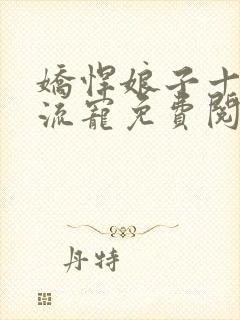 嬌悍娘子十
流寵免費閱
丹特